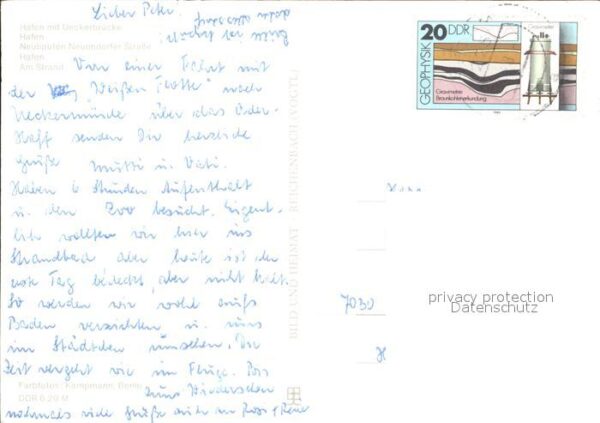 Lieber Peter!
Hafen mit Ueckerbrücke
Hafen
Neubauten Neuendorfer Straße
Hafen
Am Strand
Von einer Fahrt mit
der "Weißen Flotte" nach
Ueckermünde über das Oder-
Haff senden Dir herzliche
Grüße Mutti u. Vati.
Haben 6 Stunden Aufenthalt
u. den Zoo besucht. Eigent-
lich wollten wir hier ins
Strandbad aber heute ist der
erste Tag bedeckt, aber nicht kalt.
So werden wir wohl aufs
Baden verzichten u. uns
im Städtchen umsehen. Die
Zeit vergeht wie im Fluge. Bis
zum Wiedersehen
nochmals viele Grüße auch an Ross + Rene
Farbfotos: Kampmann, Berlin
DDR 0,20 M
BILD UND HEIMAT REICHENBACH (VOGTL)
20 DDR
GEOPHYSIK
Gravimetrie
Braunkohlenerkundung
Gravimeter
7030
privacy protection
Datenschutz